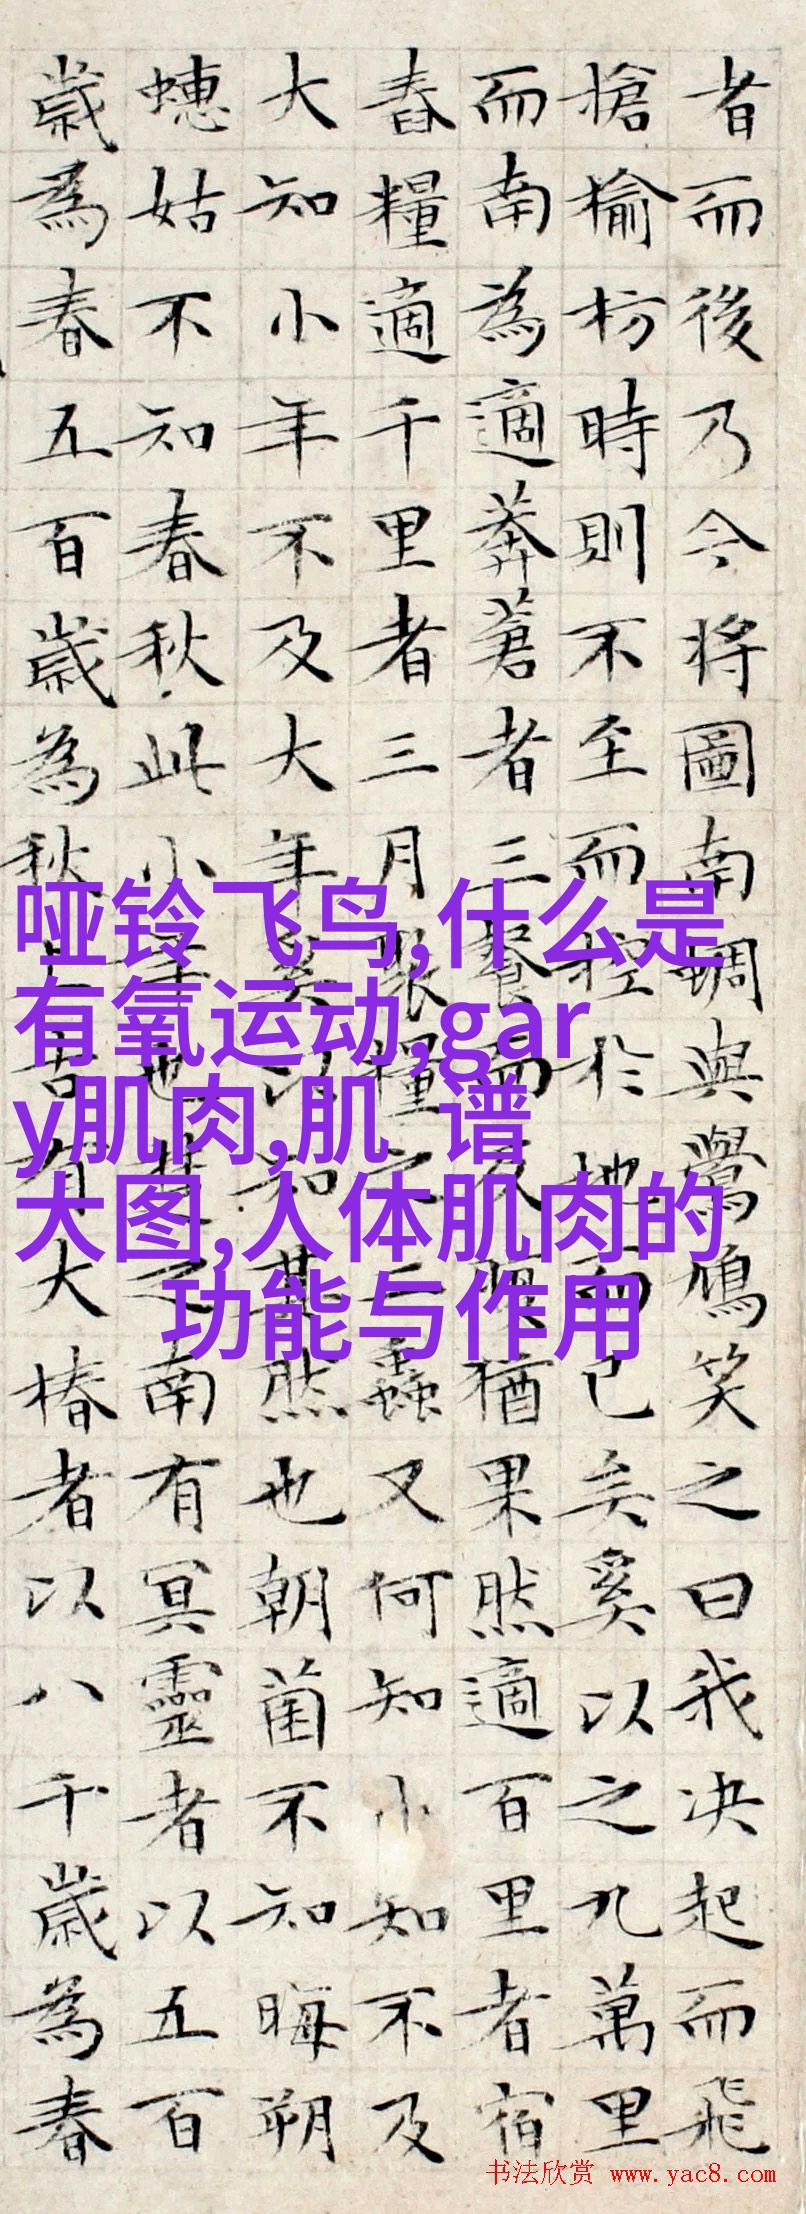 者而後乃今将圖南蜩與鷽鳩笑之曰我决起而飛
搶榆枋時則不至而控於地而已矣奚以之九萬里
而南為適莽蒼者三餐而反腹猶果然適百里者宿
舂糧適千里者三月聚糧之二蟲又何知小知不及
大知小年不及大年奚以知其然也朝菌不知晦朔
蟪姑不知春秋此小年也楚之南有冥靈者以五百
歲為春五百歲為秋上古有大椿者以八千歲為春
哑铃飞鸟,什么是
有氧运动,gar
y肌肉,肌 谱
大图,人体肌肉的
功能与作用
书法欣赏 www.yac8.com